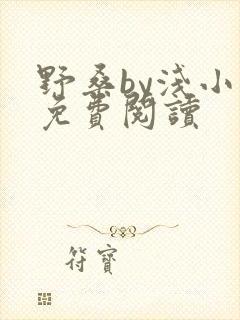 野桑by淺小
免費閱讀
符寶